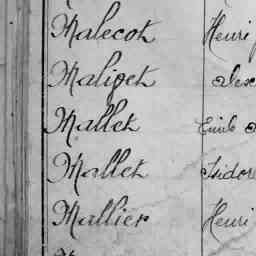 Malecot Henri
Maliget Alex
Mallet Emile
Mallet Isidor
Mallier Henri